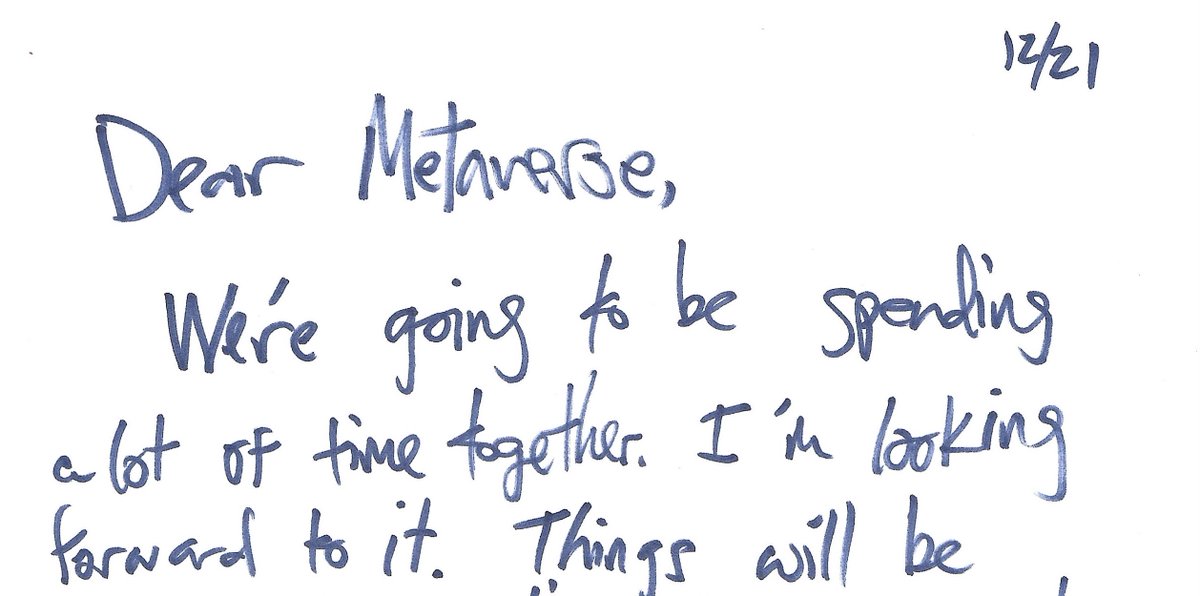 12/21
Dear Metaverse,
We're going to be spending
a lot of time together. I'm looking
forward to it. Things will be